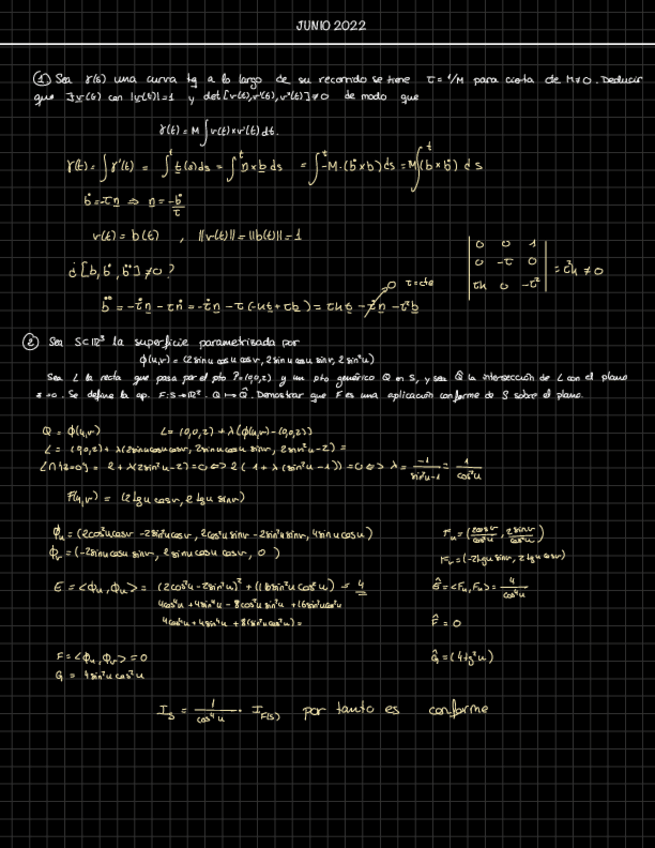 JUNIO 2022
① Sea γ(s) una curva tq a lo largo de su recorrido se tiene τ = 1/M para cierta cte M≠0. Deducir
que ∃ v(t) con |v(t)|=1 y det[v(t),v'(t),v''(t)]≠0 de modo que
γ(t) = M ∫ v(t) × v'(t) dt.
γ(t) = ∫ γ'(t) = ∫^t t(s) ds = ∫^t n×b ds = ∫^t -M·(ḃ×b) ds = M∫^t (b×ḃ) ds
ḃ = -τn ⇒ n = -ḃ/τ
v(t) = b(t) , ||v(t)|| = ||b(t)|| = 1
¿[b, ḃ, b̈] ≠ 0?
b̈ = -τ̇n - τṅ = -τ̇n - τ(-κt + τb) = τκt - τ̇n - τ²b
0 τ=cte
| 0 0 1 |
| 0 -τ 0 | = τ²κ ≠ 0
| τκ 0 -τ² |
② Sea S⊂ℝ³ la superficie parametrizada por
ϕ(u,v) = (2 sinu cosu cosv, 2 sinu cosu sinv, 2 sin²u)
Sea L la recta que pasa por el pto P=(0,0,2) y un pto genérico Q en S, y sea Q̂ la intersección de L con el plano
z=0. Se define la ap. F: S→ℝ². Q ↦ Q̂. Demostrar que F es una aplicación conforme de S sobre el plano.
Q = ϕ(u,v) L = (0,0,2) + λ(ϕ(u,v) - (0,0,2))
L = (0,0,2) + λ(2sinu cosu cosv, 2sinu cosu sinv, 2sin²u - 2) =
L∩{z=0} = 2 + λ(2sin²u-2) = 0 ⇔ 2(1 + λ(sin²u-1)) = 0 ⇔ λ = -1/(sin²u-1) = 1/cos²u
F(u,v) = (2 tgu cosv, 2 tgu sinv)
ϕu = (2cos²u cosv - 2sin²u cosv, 2cos²u sinv - 2sin²u sinv, 4sinu cosu)
ϕv = (-2sinu cosu sinv, 2 sinu cosu cosv, 0)
Fu = (2cosv/cos²u, 2sinv/cos²u)
Fv = (-2tgu sinv, 2tgu cosv)
E = <ϕu, ϕu> = (2cos²u - 2sin²u)² + (16sin²u cos²u) = 4
4cos⁴u + 4sin⁴u - 8cos²u sin²u + 16sin²u cos²u
4cos⁴u + 4sin⁴u + 8(sin²u cos²u) =
Ê = <Fu, Fu> = 4/cos⁴u
F̂ = 0
F = <ϕu, ϕv> = 0
G = 4sin²u cos²u
Ĝ = (4tg²u)
I_S = 1/cos⁴u · I_F(S) por tanto es conforme